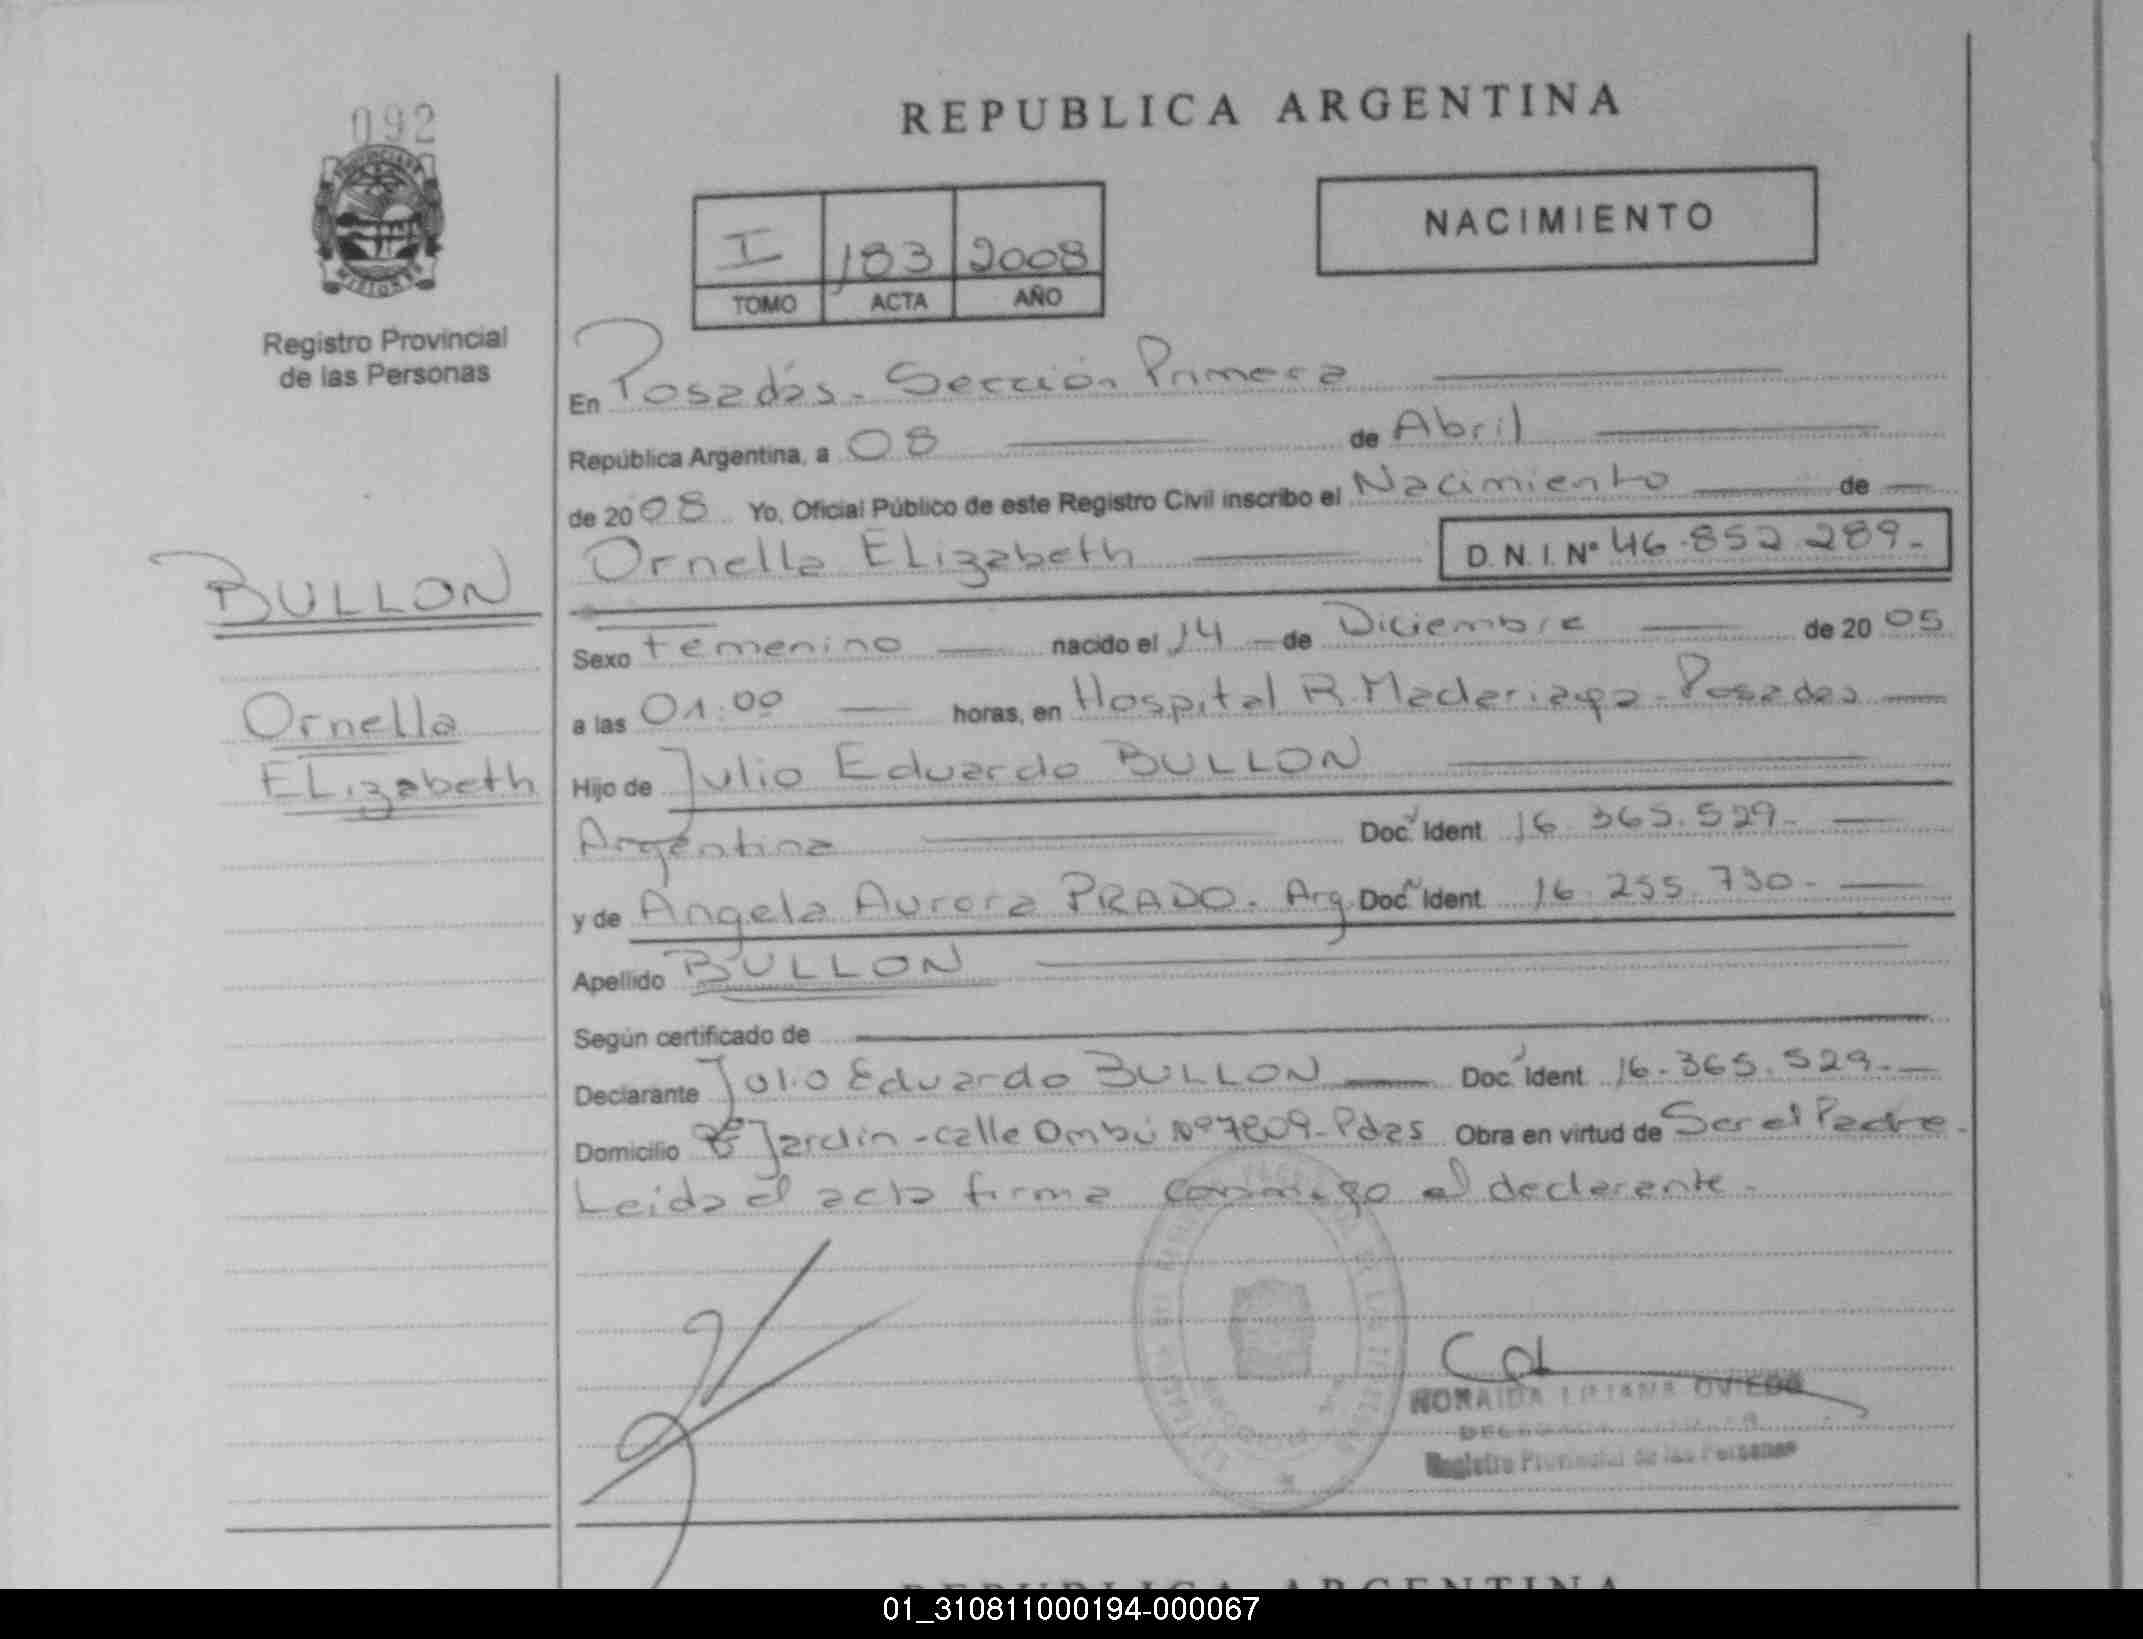 092
REPUBLICA ARGENTINA
NACIMIENTO
I 183 2008
TOMO ACTA AÑO
Registro Provincial
de las Personas
En Posadas - Sección Primera
República Argentina, a 08 de Abril
de 2008 Yo, Oficial Público de este Registro Civil inscribo el Nacimiento de
Ornella ELizabeth D.N.I. Nº 46.852.289-
BULLON
Sexo femenino nacido el 14 de Diciembre de 2005
a las 01:00 horas, en Hospital R. Madariaga - Posadas
Ornella
ELizabeth
Hijo de Julio Eduardo BULLON
Argentina Doc. Ident 16.365.529-
y de Angela Aurora PRADO. Arg. Doc. Ident 16.255.730-
Apellido BULLON
Según certificado de
Declarante Julio Eduardo BULLON Doc. Ident 16.365.529-
Domicilio Bº Jardin - calle Ombú Nº 7809 - Pdas Obra en virtud de Ser el Padre-
Leida el acta firma conmigo el declarante-
LILIANA OVIEDO
Registro Provincial de las Personas
REPUBLICA ARGENTINA
01_310811000194-000067